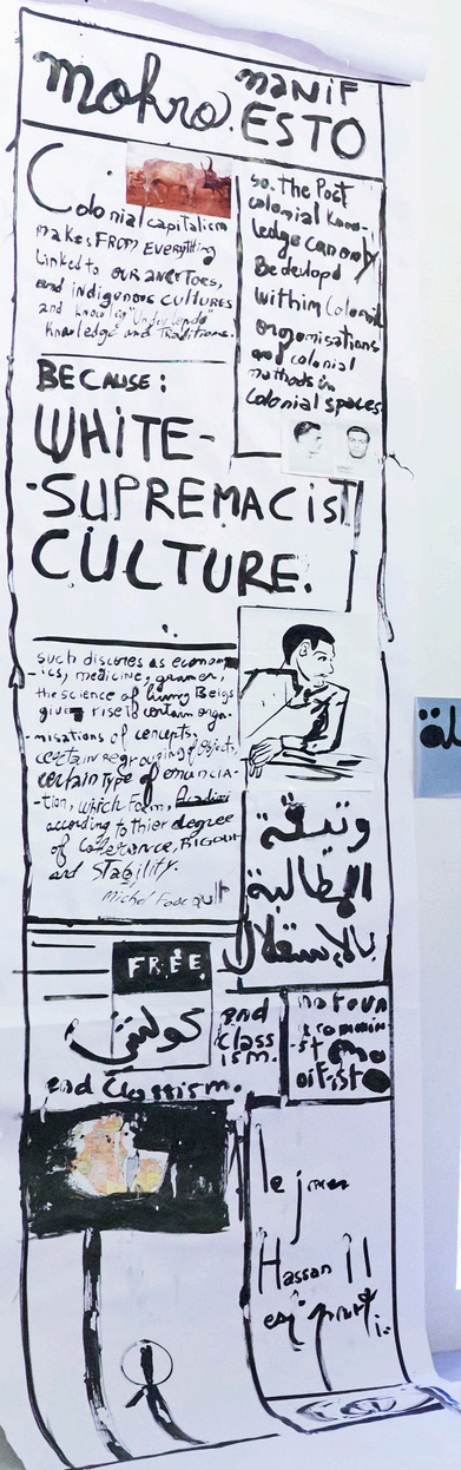 mohro.
MANIF
ESTO
Colonial capitalism
makes FROM EVERYthing
Linked to OUR ancrtoes,
and indigenous cultures
and
Knowledge and Traditions.
so. the Post
colonial Know-
ledge can only
Be devlopd
within Colonial
orgonisations
and colonial
mathods in
Colonial spaces
BECAUSE:
WHITE-
-SUPREMACIST
CULTURE.
such discores as econom
-ics, medicine, gramer,
the science of living Beigs
give rise to certain orga-
-misations of concepts,
certain regrouping of objects,
certain type of enuncia-
-tion, which Form,
according to thier degree
of coherance, RIGOUR
and STability.
Michel Foucault
وثيقة
المطالبة
بالإستقلال
FREE
كولشي
end
Class
ism.
end Classism.
le jour
Hassan II
est